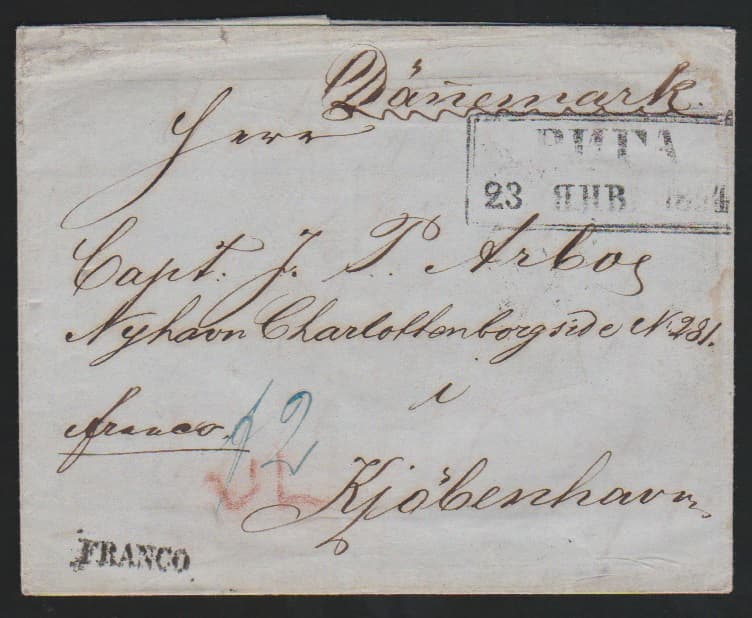 Dänemark.
Herr
РИГА
23 ЯНВ. 1854
Capt. J. P. Arboe
Nyhavn Charlottenborgside No 231.
i
franco.
12
Kjöbenhavn
FRANCO